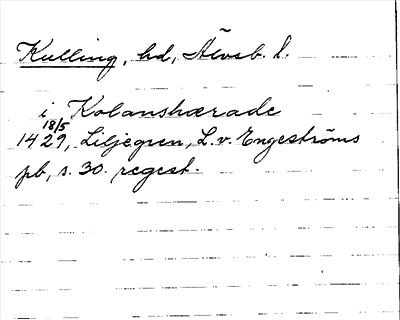 Kulling, hd, Älvsb. l.
i Kolanshærade
18/5
1429, Liljegren, L. v. Engeströms
pb, s. 30. regest.